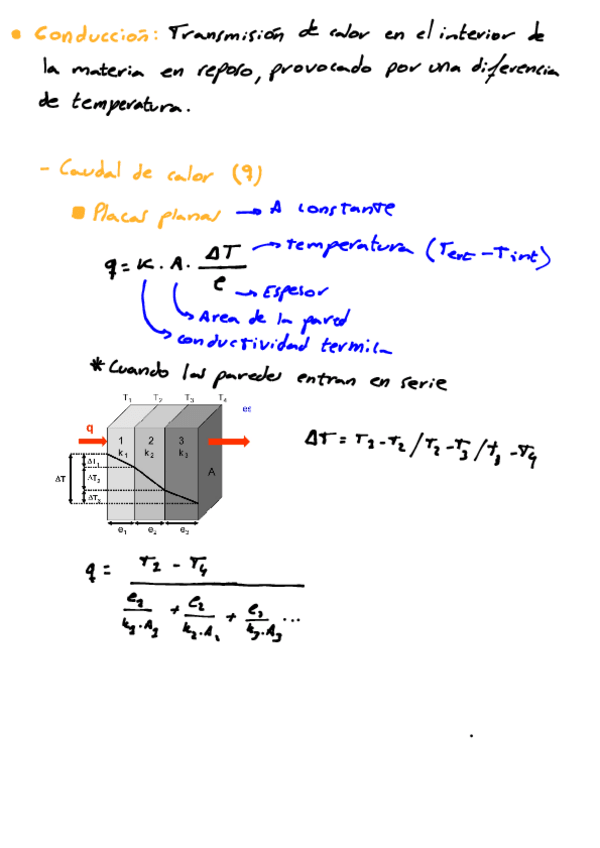 • Conducción: Transmisión de calor en el interior de
la materia en reposo, provocado por una diferencia
de temperatura.
- Caudal de calor (q)
▪ Placas planas → A constante
q = K · A · ΔT / e
→ temperatura (Text - Tint)
→ Espesor
→ Area de la pared
→ conductividad termica
* Cuando las paredes entran en serie
T1 T2 T3 T4
es
q
1 2 3
k1 k2 k3
A
ΔT
ΔT1
ΔT2
ΔT3
e1 e2 e3
ΔT = T1 - T2 / T2 - T3 / T3 - T4
q = T1 - T4 / e1/k1·A1 + e2/k2·A2 + e3/k3·A3 ...